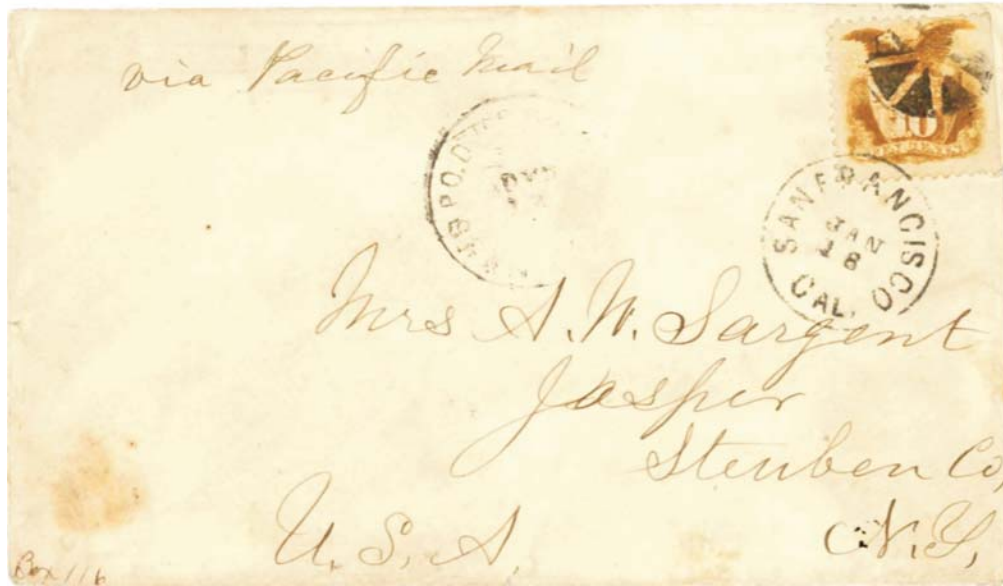 via Pacific Mail
10
TEN CENTS
SAN FRANCISCO
JAN
18
CAL.
P.O.
Mrs A. W. Sargent
Jasper
Steuben Co,
N.Y,
U. S. A.
Box 116